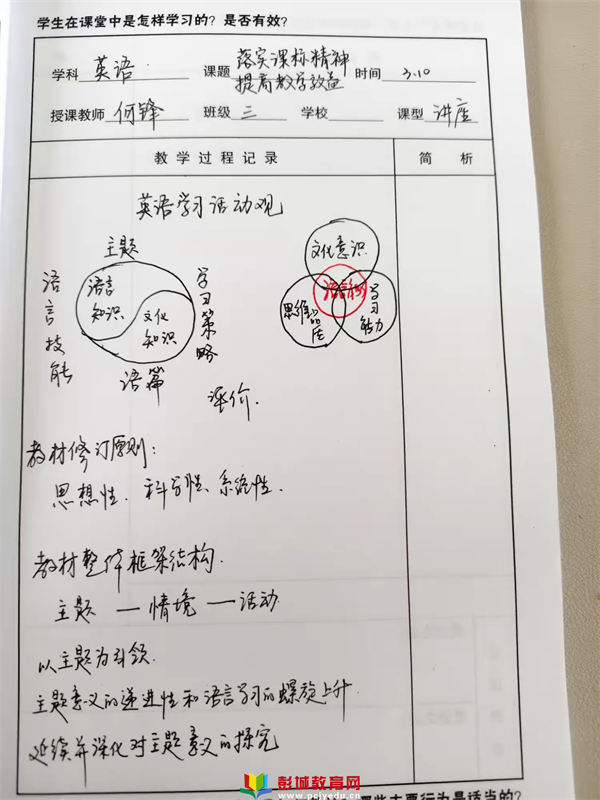 学生在课堂中是怎样学习的？是否有效？
学科 英语 课题 落实课标精神 提高教学效益 时间 3.10
授课教师 何锋 班级 三 学校 课型 讲座
教学过程记录 简析
英语学习活动观
主题
语言技能
语言知识
文化知识
学习策略
语篇
评价.
文化意识
语言能力
思维品质
学习能力
教材修订原则：
思想性、科学性、系统性.
教材整体框架结构.
主题 — 情境 — 活动
以主题为引领.
主题意义的递进性和语言学习的螺旋上升
延续并深化对主题意义的探究
彭城教育网
www.pcjyedu.cn
主要行为是适当的？